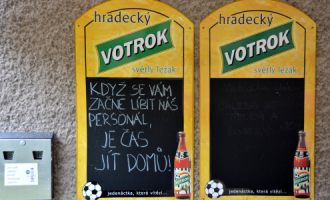 hradecký
VOTROK
svěrlý ležák
KDYŽ SE VÁM
ZAČNE LÍBIT NÁŠ
PERSONÁL,
JE ČAS
JÍT DOMŮ!
jedenáctka, která vítězí...
hradecký
VOTROK
světlý ležák
jedenáctka, která vítězí...